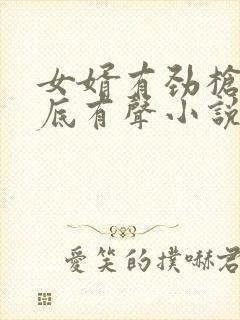 女婿有勁槍
底有聲小說
愛笑的撲嚇君